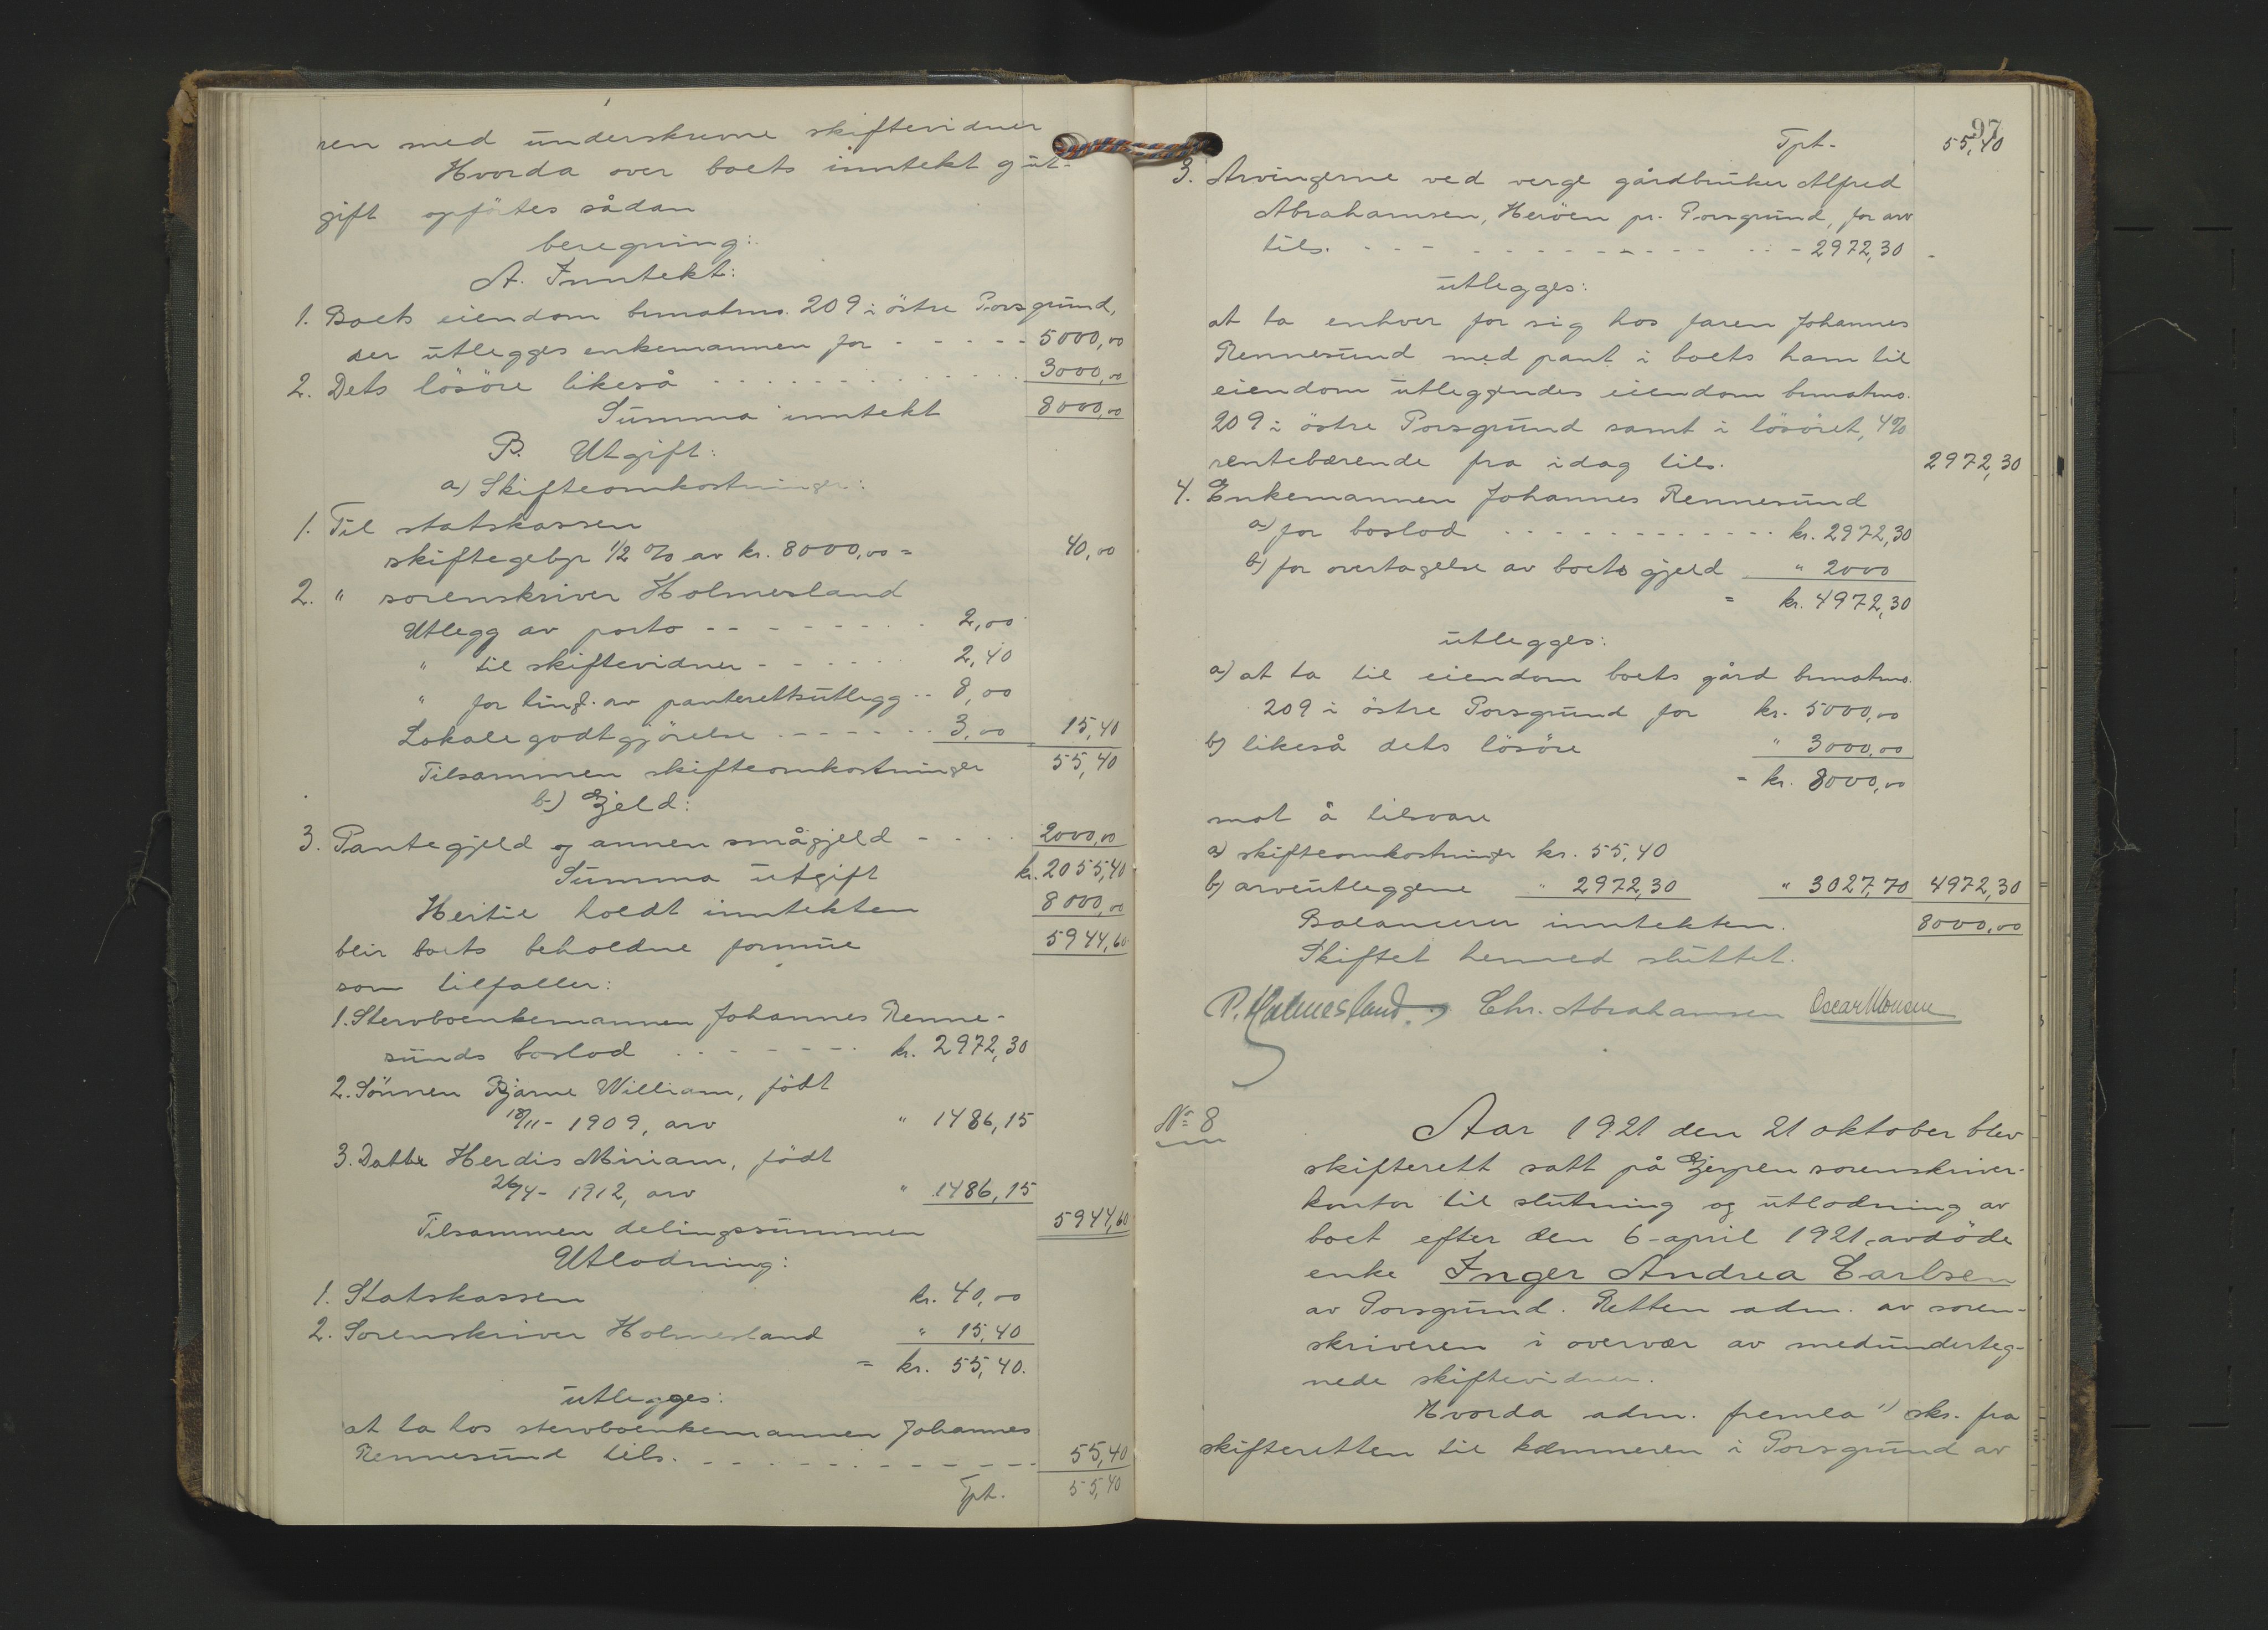 ren med underskrevne skiftevidner
Hvorda over boets inntekt og ut-
gift opförtes sådan
beregning:
A. Inntekt:
1. Boets eiendom brmatno. 209 i östre Porsgrund,
der utlegges enkemannen for - - - - - 5000,00
2. Dets lösöre likeså - - - - - 3000,00
Summa inntekt 8000,00
B. Utgift:
a) Skifteomkostninger:
1. Til statskassen
skiftegebyr 1/2 % av kr. 8000,00 = 40,00
2. " sorenskriver Holmesland
Utlegg av porto - - - - - 2,00
" til skiftevidner - - - - - 2,40
" for tingl. av panterettsutlegg - - 8,00
Lokalegodtgjörelse - - - - - 3,00 15,40
Tilsammen skifteomkostninger 55,40
b) Gjeld:
3. Pantegjeld og annen smågjeld - - - - 2000,00
Summa utgift kr. 2055,40
Hertil holdt inntekten 8000,00
blir boets beholdne formue 5944,60
som tilfaller:
1. Stervboenkemannen Johannes Renne-
sunds boslod - - - - - kr. 2972,30
2. Sönnen Bjarne William, födt
18/11 - 1909, arv " 1486,15
3. Datter Herdis Miriam, födt
26/4 - 1912, arv " 1486,15
Tilsammen delingssummen 5944,60
Utlodning:
1. Statskassen kr. 40,00
2. Sorenskriver Holmesland " 15,40
= kr. 55,40.
utlegges:
at ta hos stervboenkemannen Johannes
Rennesund tils. - - - - - 55,40
Tpt. 55,40
97
Tpt. 55,40
3. Arvingerne ved verge gårdbruker Alfred
Abrahamsen, Heröen pr. Porsgrund, for arv
tils. - - - - - 2972,30
utlegges:
at ta enhver for sig hos faren Johannes
Rennesund med pant i boets ham til
eiendom utleggendes eiendom brmatno.
209 i östre Porsgrund samt i lösöret, 4%
rentebærende fra idag tils. 2972,30
4. Enkemannen Johannes Rennesund
a) for boslod - - - - - kr. 2972,30
b) for overtagelse av boets gjeld " 2000
= kr. 4972,30
utlegges:
a) at ta til eiendom boets gård brmatno.
209 i östre Porsgrund for kr. 5000,00
b) likeså dets lösöre " 3000,00
= kr. 8000,00
mot å tilsvare
a) skifteomkostninger kr. 55,40
b) arveutleggene " 2972,30 " 3027,70 4972,30
Balancerer inntekten. 8000,00
Skiftet hermed sluttet.
P. Holmesland. Chr. Abrahamsen Oscar Monsen
No 8
Aar 1921 den 21 oktober blev
skifterett satt på Gjerpen sorenskriver-
kontor til slutning og utlodning av
boet efter den 6-april 1921 avdöde
enke Inger Andrea Carlsen
av Porsgrund. Retten adm. av soren-
skriveren i overvær av medunderteg-
nede skiftevidner.
Hvorda adm. fremla 1) sks. fra
skifteretten til kæmneren i Porsgrund av